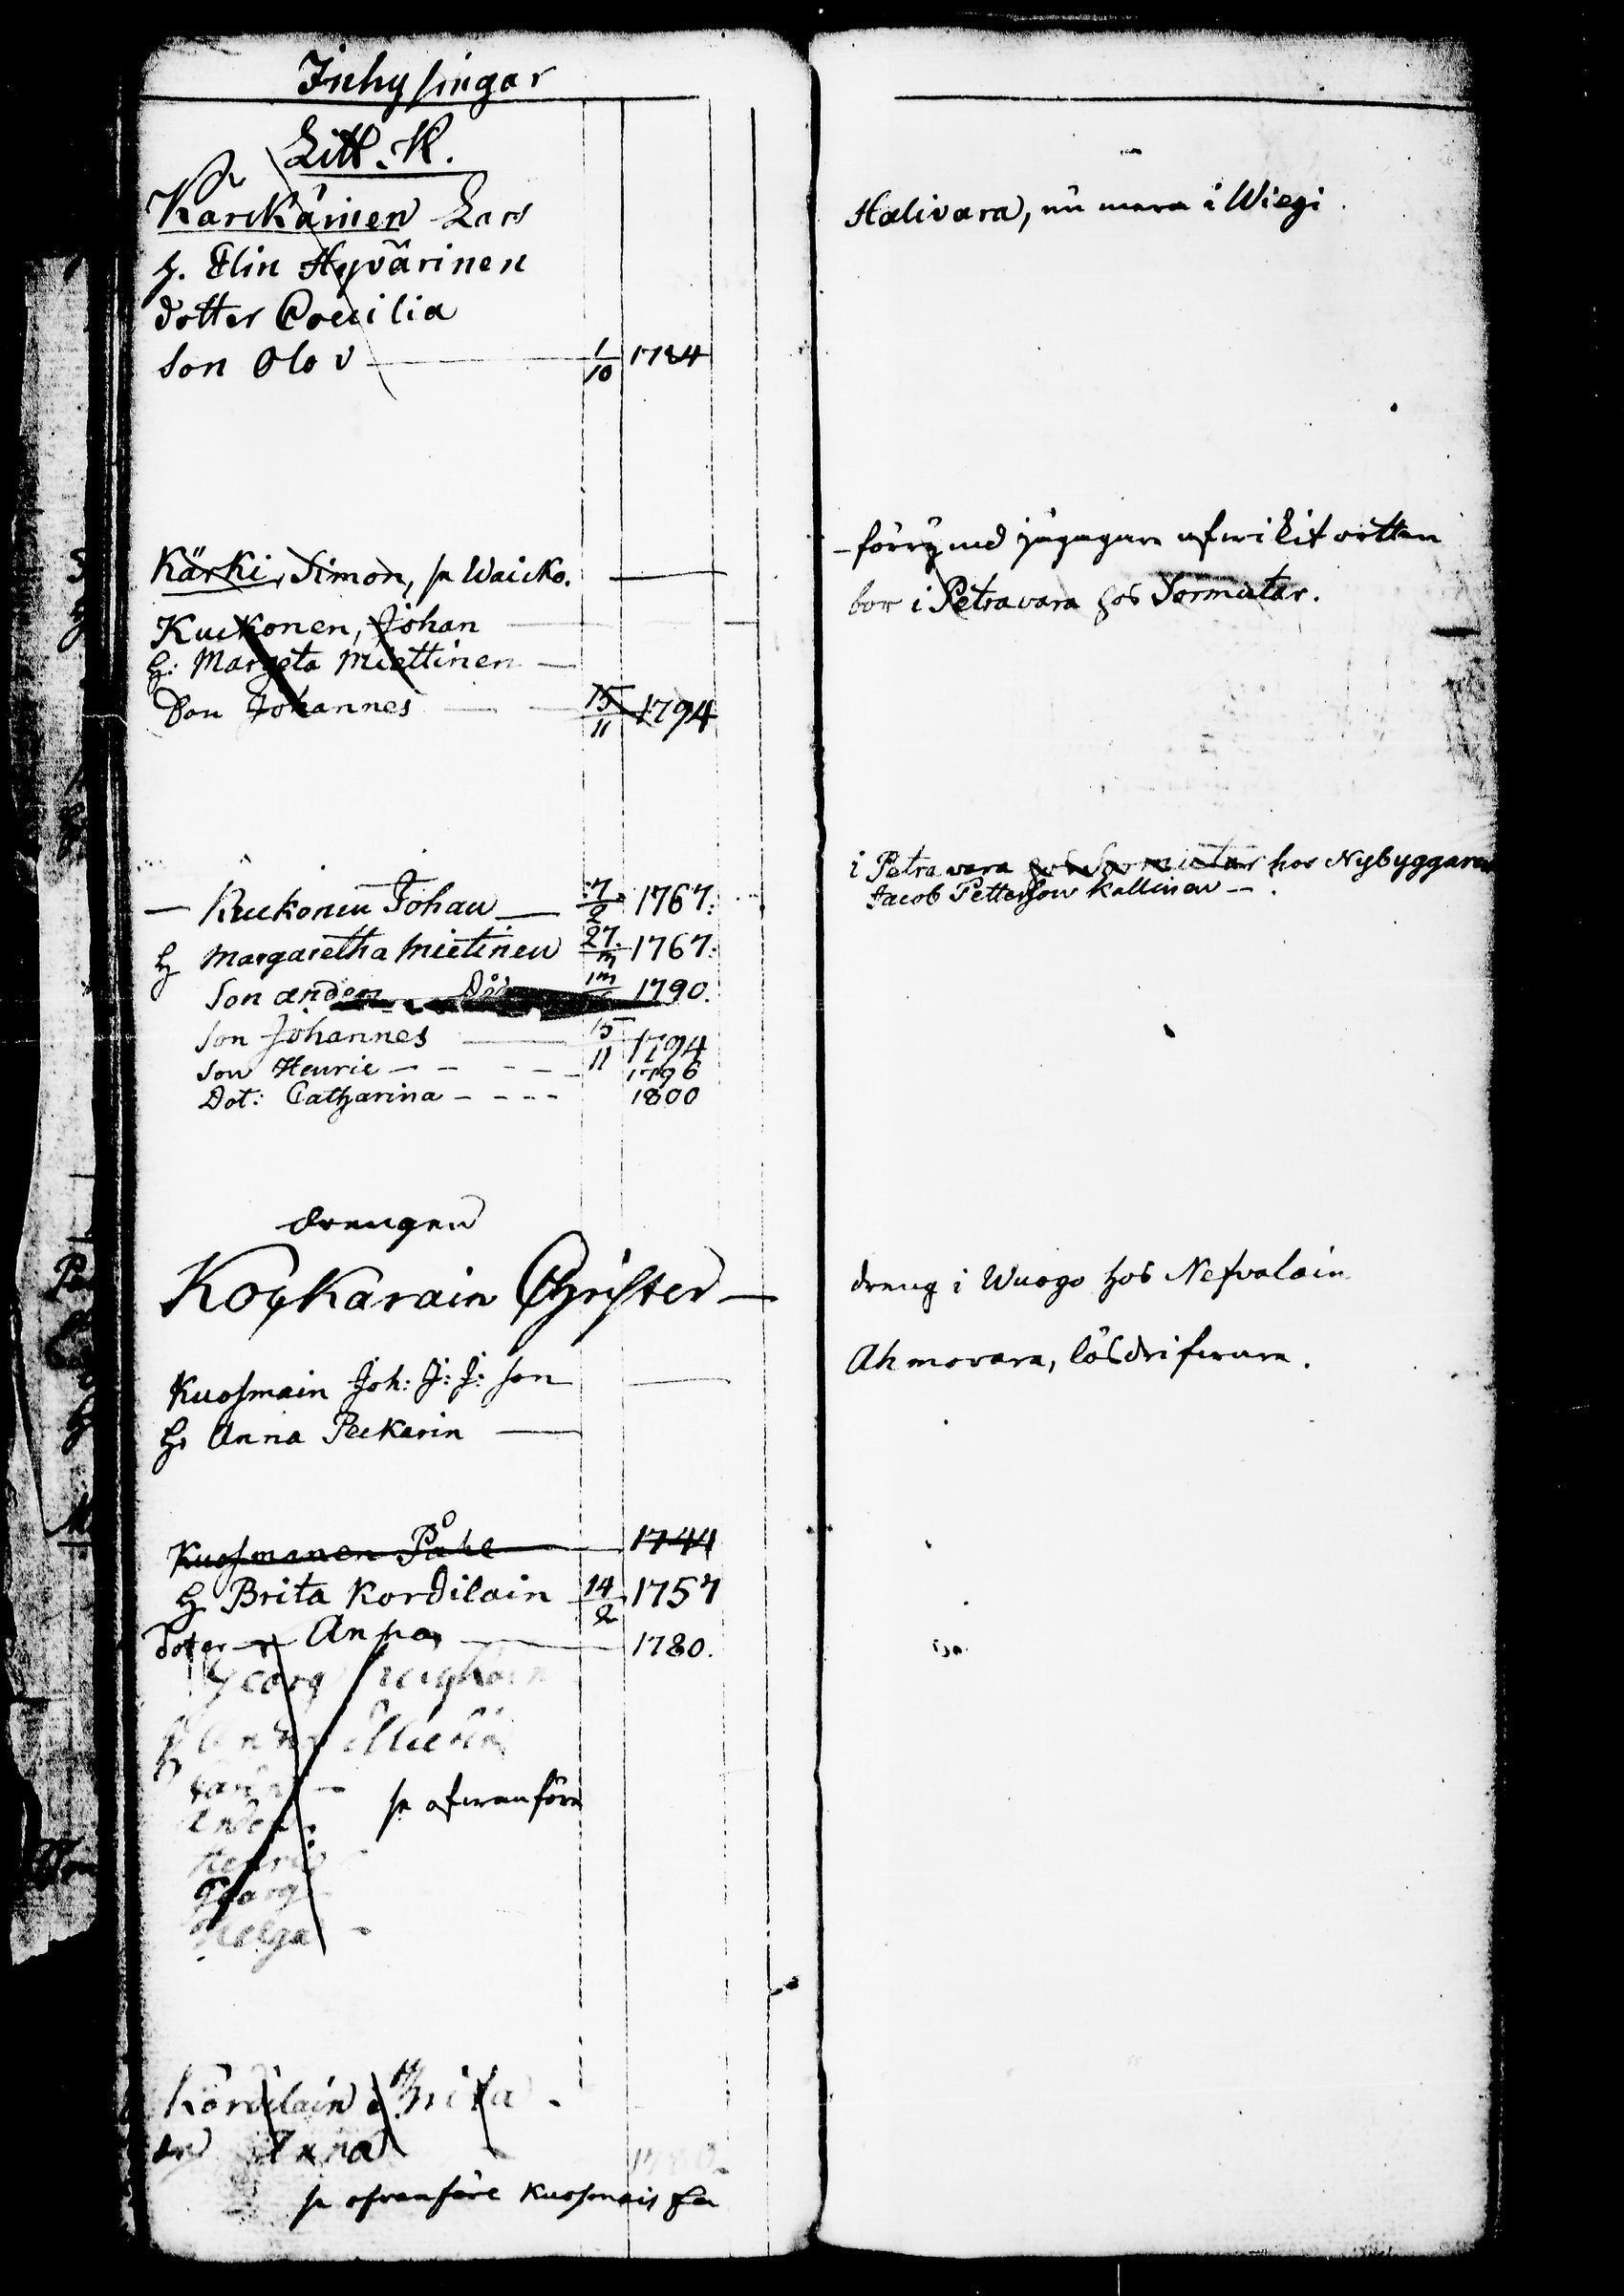 Inhysingar
Litt. K.
Karckäinen Lars
h. Elin Hyvärinen
dotter Coecilia
Son Olov 1/10 1784
Halivara, nu mera i Wiegi.
Kärki, Simon, se Waicko.
Kuckonen, Johan
h: Margeta Miettinen
Son Johannes 15/11 1794
bor i Petravara hos Sormutar.
Kuckonen Johan 7/2 1767.
h Margaretha Mietinen 27/m 1767.
Son anders Död 1790.
Son Johannes 15/11 1794
Son Henric 1796
Dot: Catharina 1800
i Petra vara hos Sormutar hos Nybyggaren
Jacob Petterson Kallinen
drengen
Koykarain Christer
dreng i Wuogo hos Nefvalain
Kuosmain Joh: J: J: son
h: Anna Peckarin
Ahmovara, lösdrifvare.
Kuosmanen Påhl 1744
h Brita Kordilain 14/2 1757
doter Anna 1780.
Georg
h Anna
Anders
Henric
Georg
Helga
se ofvanföre
Kordilain Brita
Anna
se ofvanföre Kuosmain